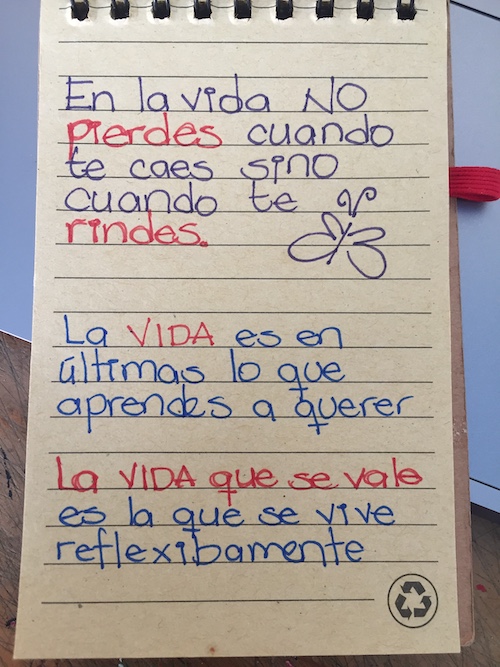 En la vida NO
pierdes cuando
te caes sino
cuando te
rindes.
La VIDA es en
últimas lo que
aprendes a querer
La VIDA que se vale
es la que se vive
reflexibamente